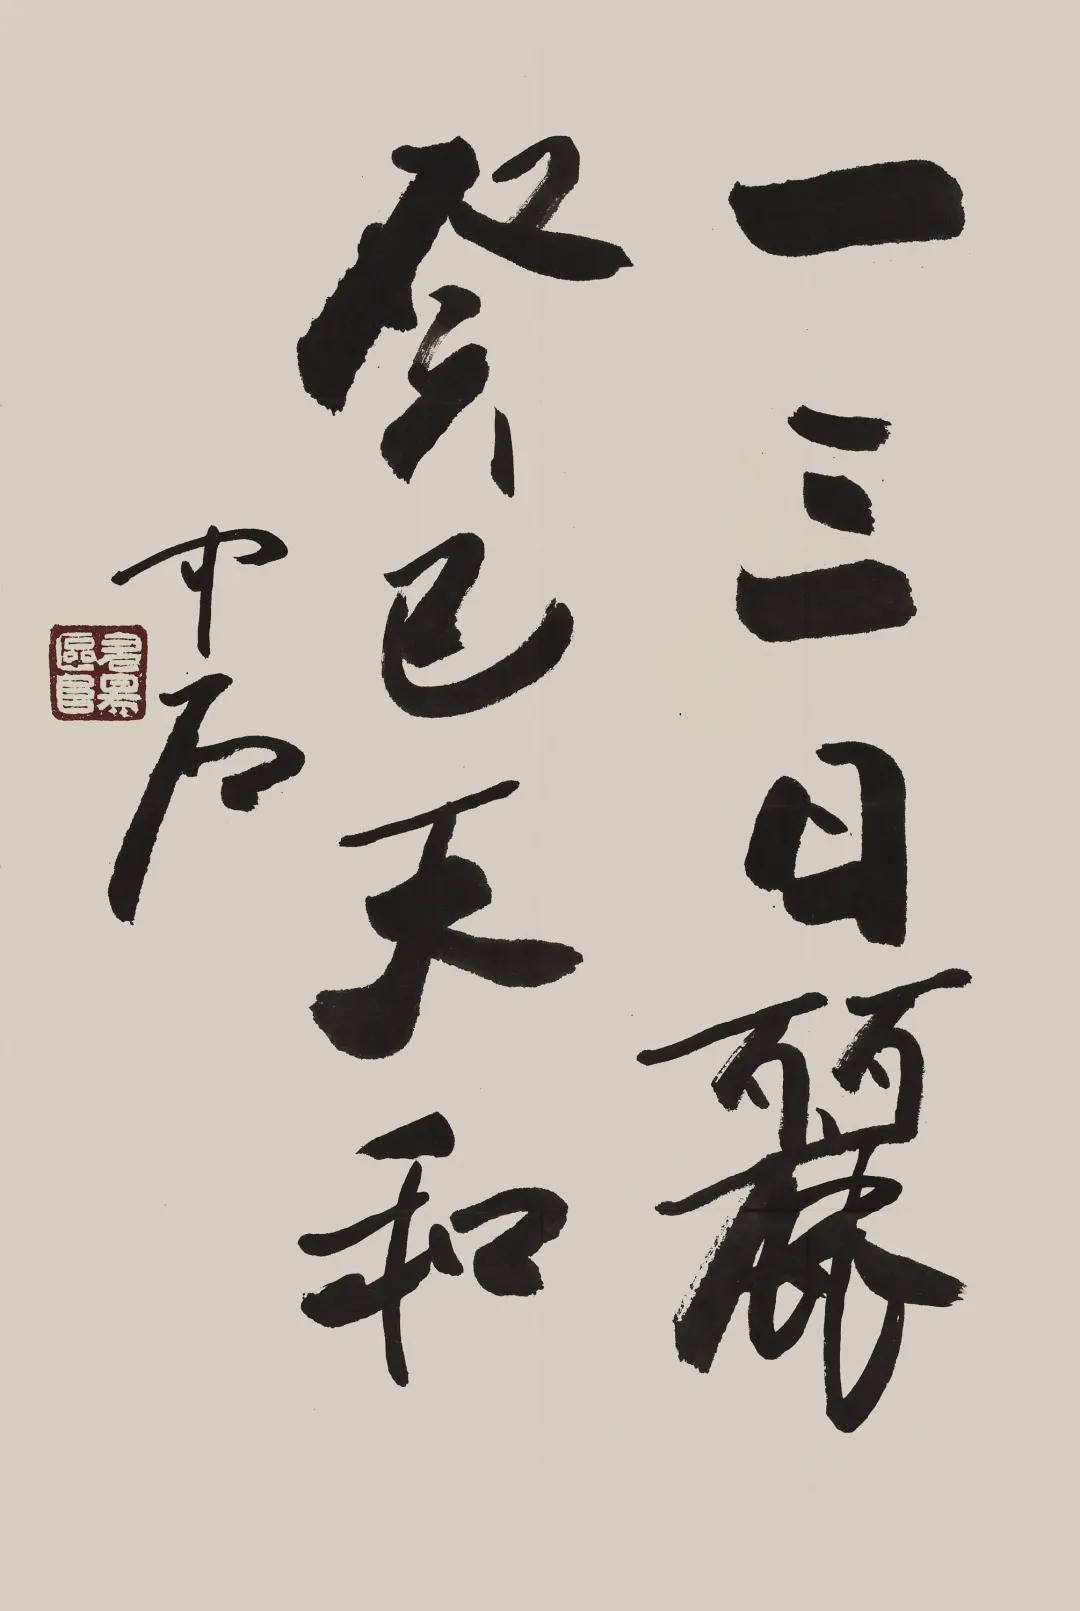 一三日麗
癸巳天和
中石